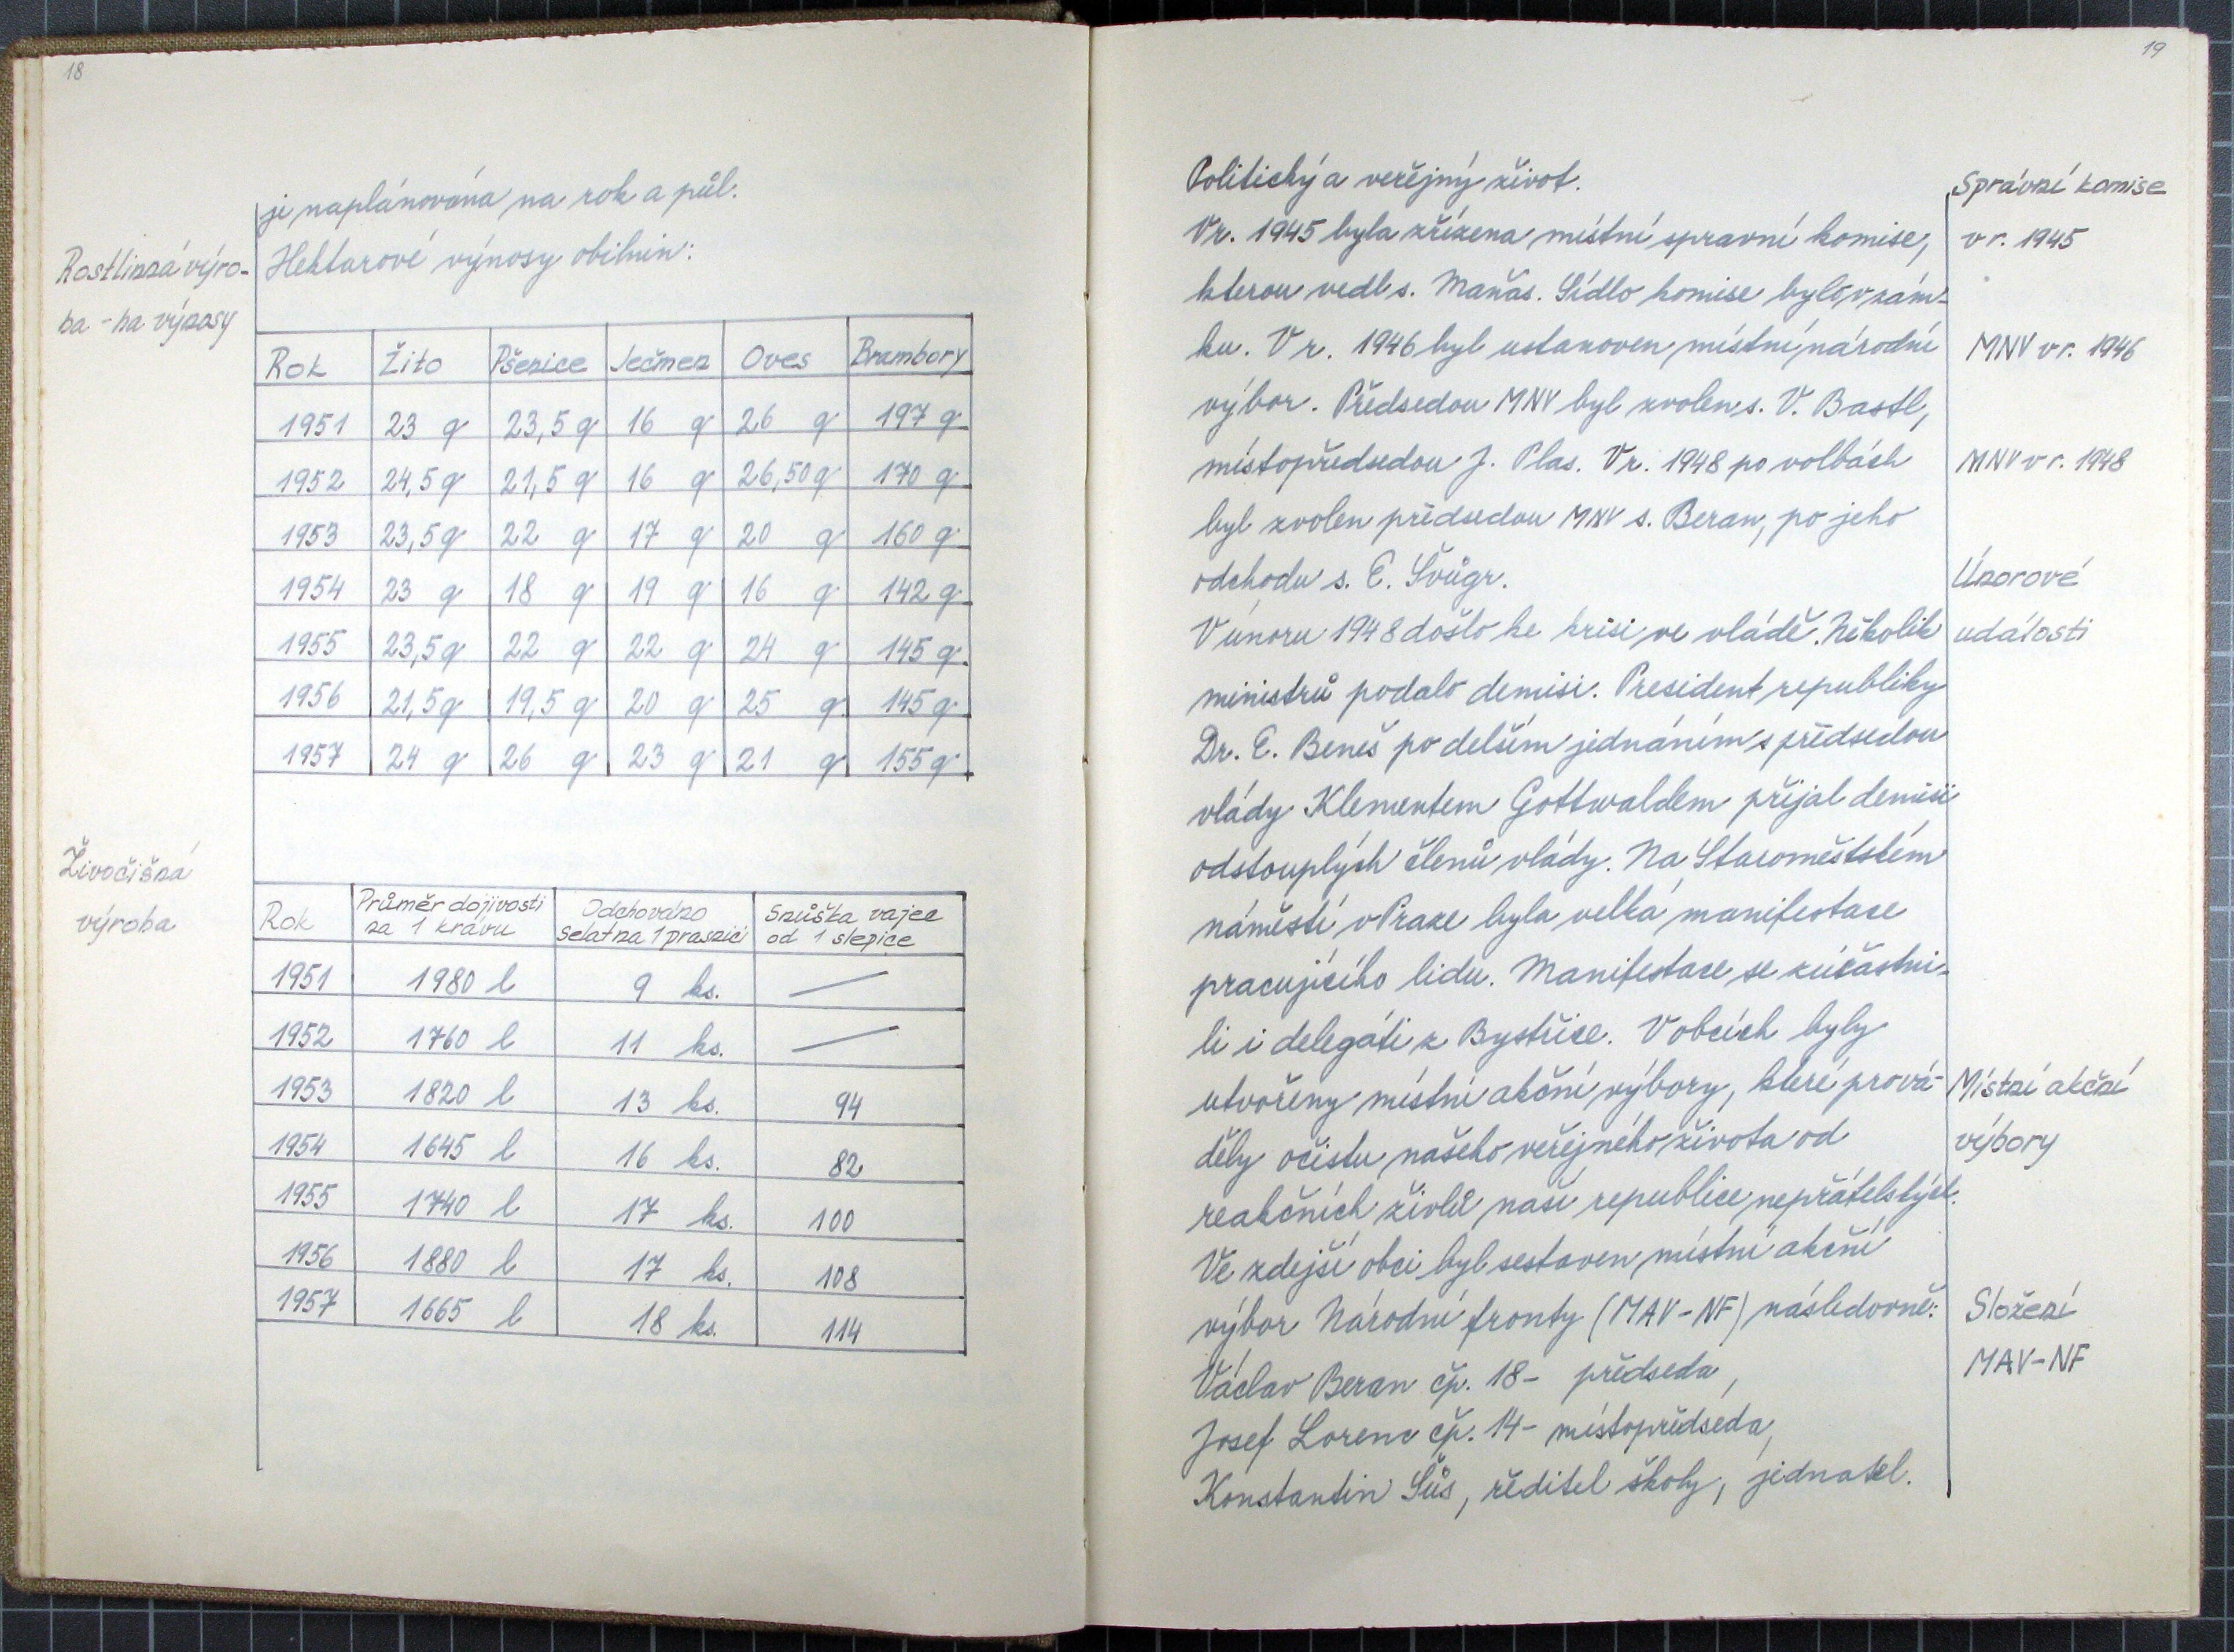 18
je naplánována na rok a půl.
Rostlinná výro-
ba - ha výnosy
Hektarové výnosy obilnin:
Rok Žito Pšenice Ječmen Oves Brambory
1951 23 q 23,5 q 16 q 26 q 197 q
1952 24,5 q 21,5 q 16 q 26,50 q 170 q
1953 23,5 q 22 q 17 q 20 q 160 q
1954 23 q 18 q 19 q 16 q 142 q
1955 23,5 q 22 q 22 q 24 q 145 q
1956 21,5 q 19,5 q 20 q 25 q 145 q
1957 24 q 26 q 23 q 21 q 155 q
Živočišná
výroba
Rok Průměr dojivosti za 1 krávu Odchováno selat na 1 prasnici Snůška vajec od 1 slepice
1951 1980 l 9 ks. —
1952 1760 l 11 ks. —
1953 1820 l 13 ks. 94
1954 1645 l 16 ks. 82
1955 1740 l 17 ks. 100
1956 1880 l 17 ks. 108
1957 1665 l 18 ks. 114
19
Politický a veřejný život.
Správní komise
V r. 1945 byla zřízena místní spravní komise,
v r. 1945
kterou vedl s. Maňas. Sídlo komise bylo v zám-
ku. V r. 1946 byl ustanoven místní národní
MNV v r. 1946
výbor. Předsedou MNV byl zvolen s. V. Bastl,
místopředsedou J. Plas. V r. 1948 po volbách
MNV v r. 1948
byl zvolen předsedou MNV s. Beran, po jeho
odchodu s. E. Švůgr.
Únorové
V únoru 1948 došlo ke krisi ve vládě. Několik
události
ministrů podalo demisi. President republiky
Dr. E. Beneš po delším jednáním s předsedou
vlády Klementem Gottwaldem přijal demisi
odstouplých členů vlády. Na Staroměstském
náměstí v Praze byla velká manifestace
pracujícího lidu. Manifestace se zúčastni-
li i delegáti z Bystřice. V obcích byly
utvořeny místní akční výbory, které prová-
Místní akční
děly očistu našeho veřejného života od
výbory
reakčních živlů naší republice nepřátelských.
Ve zdejší obci byl sestaven místní akční
výbor Národní fronty (MAV-NF) následovně:
Složení
MAV-NF
Václav Beran čp. 18 - předseda,
Josef Lorenc čp. 14 - místopředseda,
Konstantin Šůs, ředitel školy, jednatel.